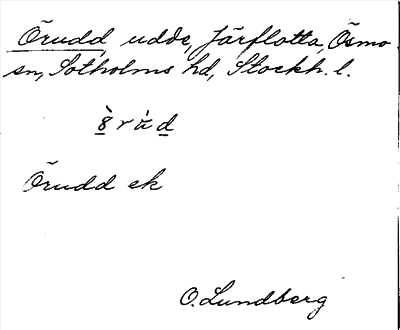 Örudd, udde, Järflotta, Ösmo
sn, Sotholms hd, Stockh. l.
Örudd ek
O. Lundberg